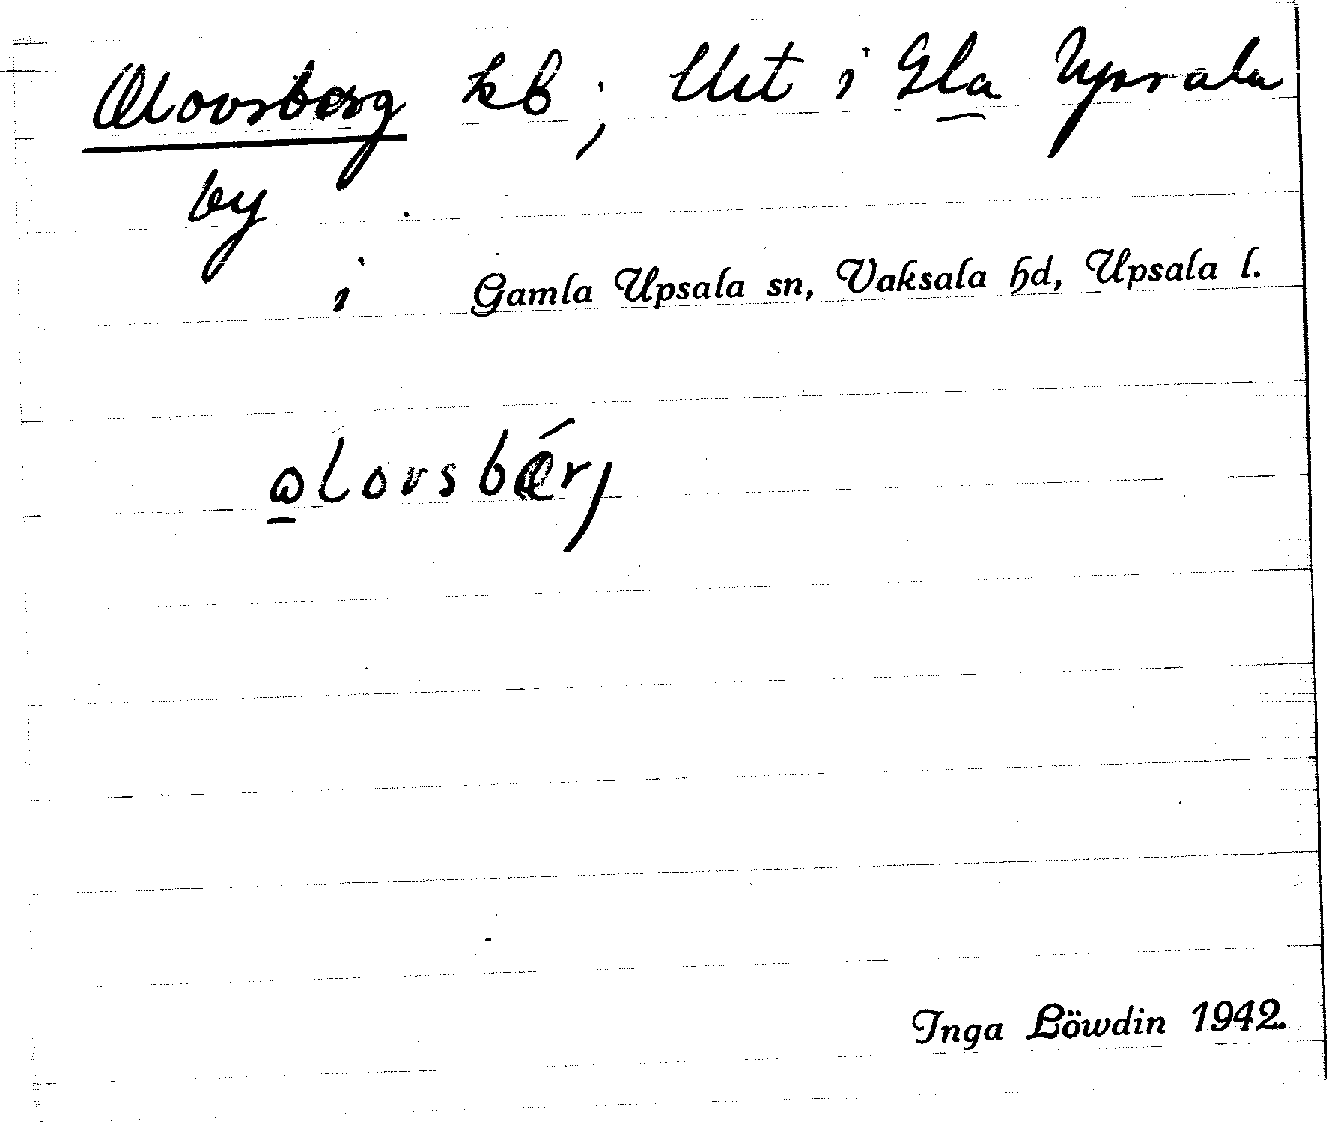 Olovsberg kb; Urt i Gla Upsala
by
i Gamla Upsala sn, Vaksala hd, Upsala l.
olovsbǽrj
Inga Löwdin 1942.